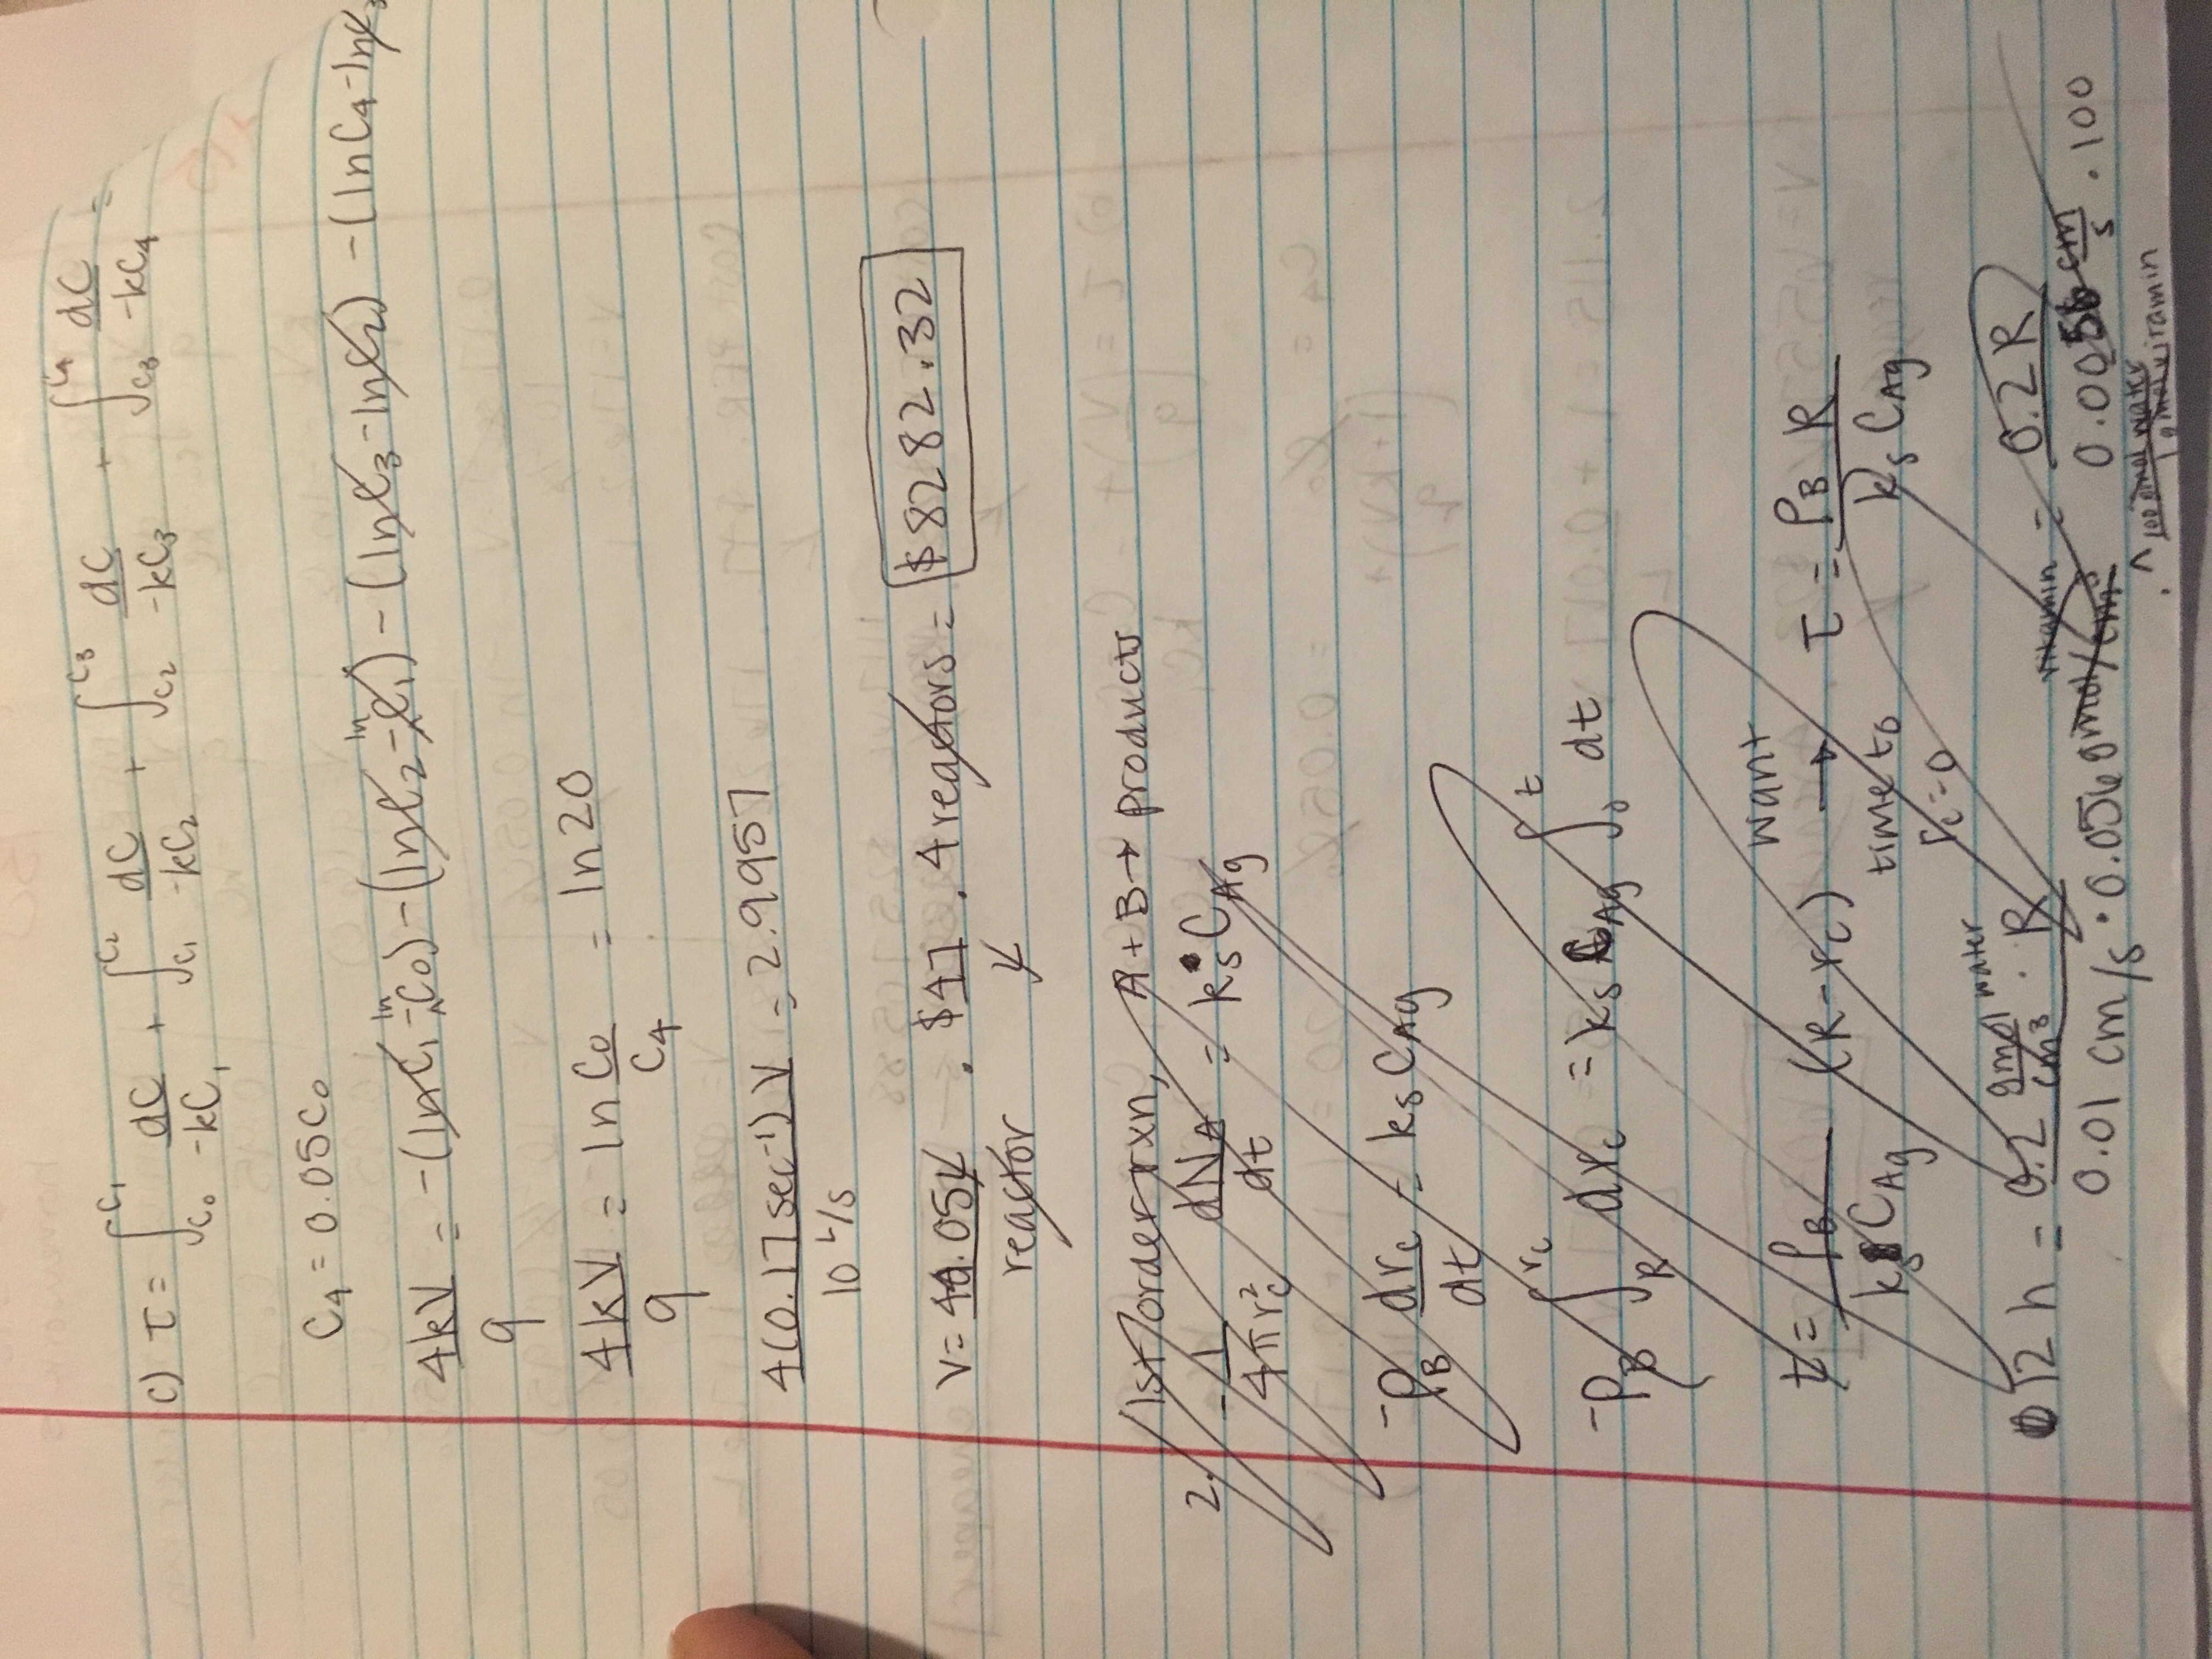 c) τ = ∫_{C₀}^{C₁} dC/-kC₁ + ∫_{C₁}^{C₂} dC/-kC₂ + ∫_{C₂}^{C₃} dC/-kC₃ + ∫_{C₃}^{C₄} dC/-kC₄ =
C₄ = 0.05C₀
4kV/q = -(lnC₁ - lnC₀) - (lnC₂ - lnC₁) - (lnC₃ - lnC₂) - (lnC₄ - lnC₃
4kV/q = ln C₀/C₄ = ln20
4(0.17sec⁻¹)V / 10 L/s = 2.9957
V = 44.05L/reactor · $47/L · 4 reactors = $8282.32
2. 1st order rxn, A + B → products
-1/4πr_c² dN_A/dt = k_s C_Ag
-ρ_B dr_c/dt = k_s C_Ag
-ρ_B ∫_R^{r_c} dr_c = k_s C_Ag ∫_0^t dt
t = ρ_B/k_s C_Ag (R - r_c) want → time to r_c = 0 τ = ρ_B R/k_s C_Ag
12 h = 0.2 gmol water/cm³ · R / 0.01 cm/s · 0.056 gmol vitamin/cm³ = 0.2 R / 0.0056 cm/s · 100
· 100 gmol water/1 gmol vitamin